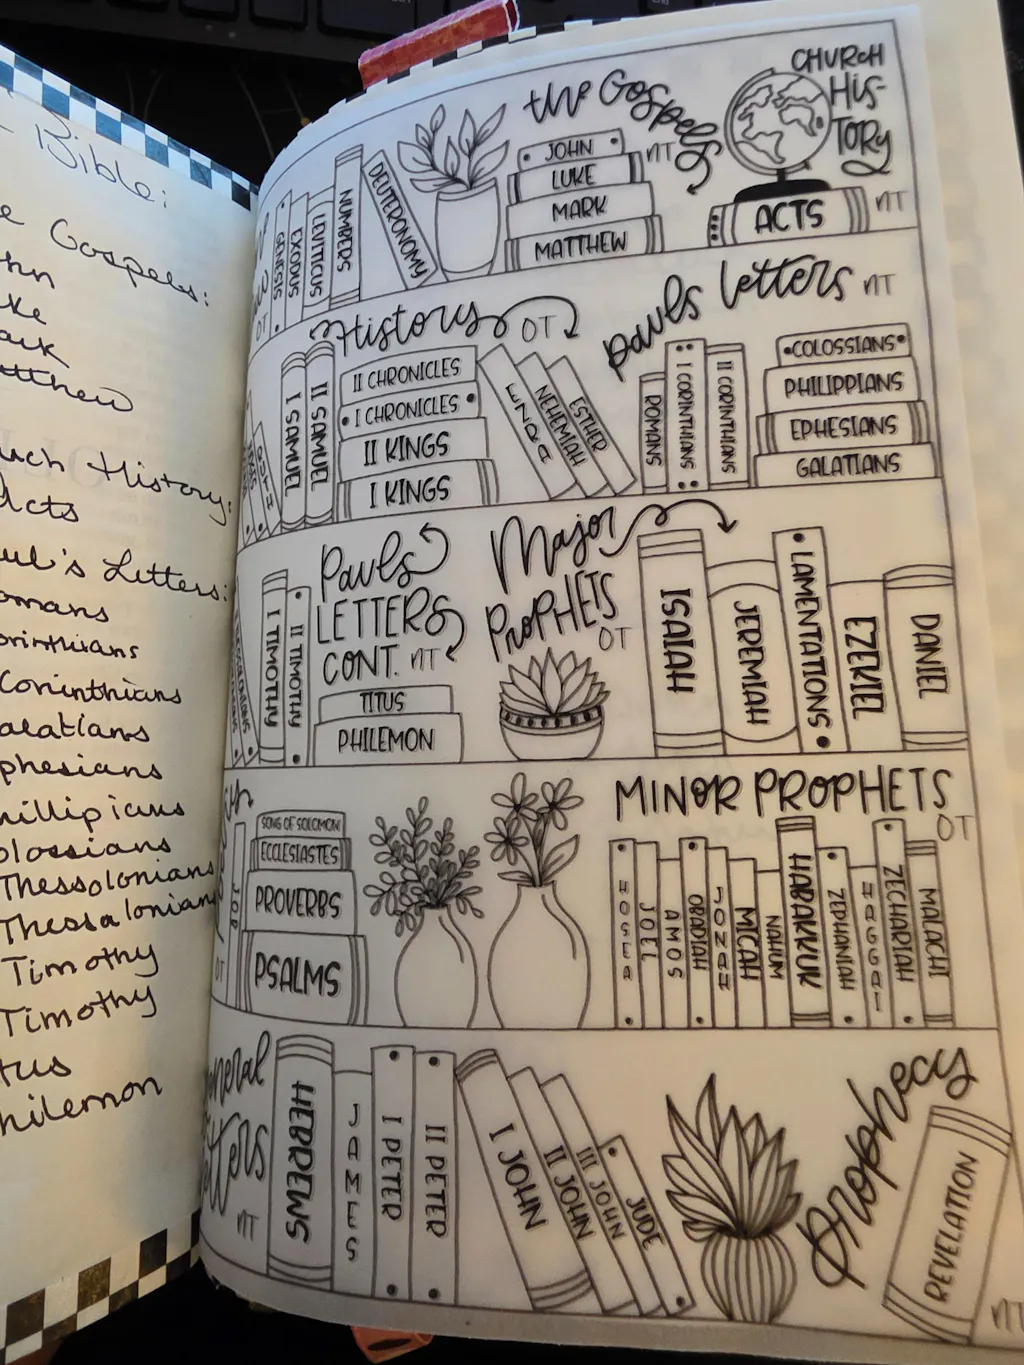 Bible:
Gospels:
Matthew
History:
Acts
Letters:
Corinthians
Thessolonians
Thessalonians
Timothy
Timothy
the Gospels
NT
CHURCH
HIS-
TORY
NT
GENESIS
EXODUS
LEVITICUS
NUMBERS
DEUTERONOMY
OT
JOHN
LUKE
MARK
MATTHEW
ACTS
History
OT
I SAMUEL
II SAMUEL
II CHRONICLES
I CHRONICLES
II KINGS
I KINGS
EZRA
NEHEMIAH
ESTHER
Pauls letters
NT
ROMANS
I CORINTHIANS
II CORINTHIANS
COLOSSIANS
PHILIPPIANS
EPHESIANS
GALATIANS
I TIMOTHY
II TIMOTHY
Pauls
LETTERS
CONT.
NT
TITUS
PHILEMON
Major
PROPHETS
OT
ISAIAH
JEREMIAH
LAMENTATIONS
EZEKIEL
DANIEL
OT
JOB
SONG OF SOLOMON
ECCLESIASTES
PROVERBS
PSALMS
MINOR PROPHETS
OT
HOSEA
JOEL
AMOS
OBADIAH
JONAH
MICAH
NAHUM
HABAKKUK
ZEPHANIAH
HAGGAI
ZECHARIAH
MALACHI
NT
HEBREWS
JAMES
I PETER
II PETER
I JOHN
II JOHN
III JOHN
JUDE
Prophecy
REVELATION
NT